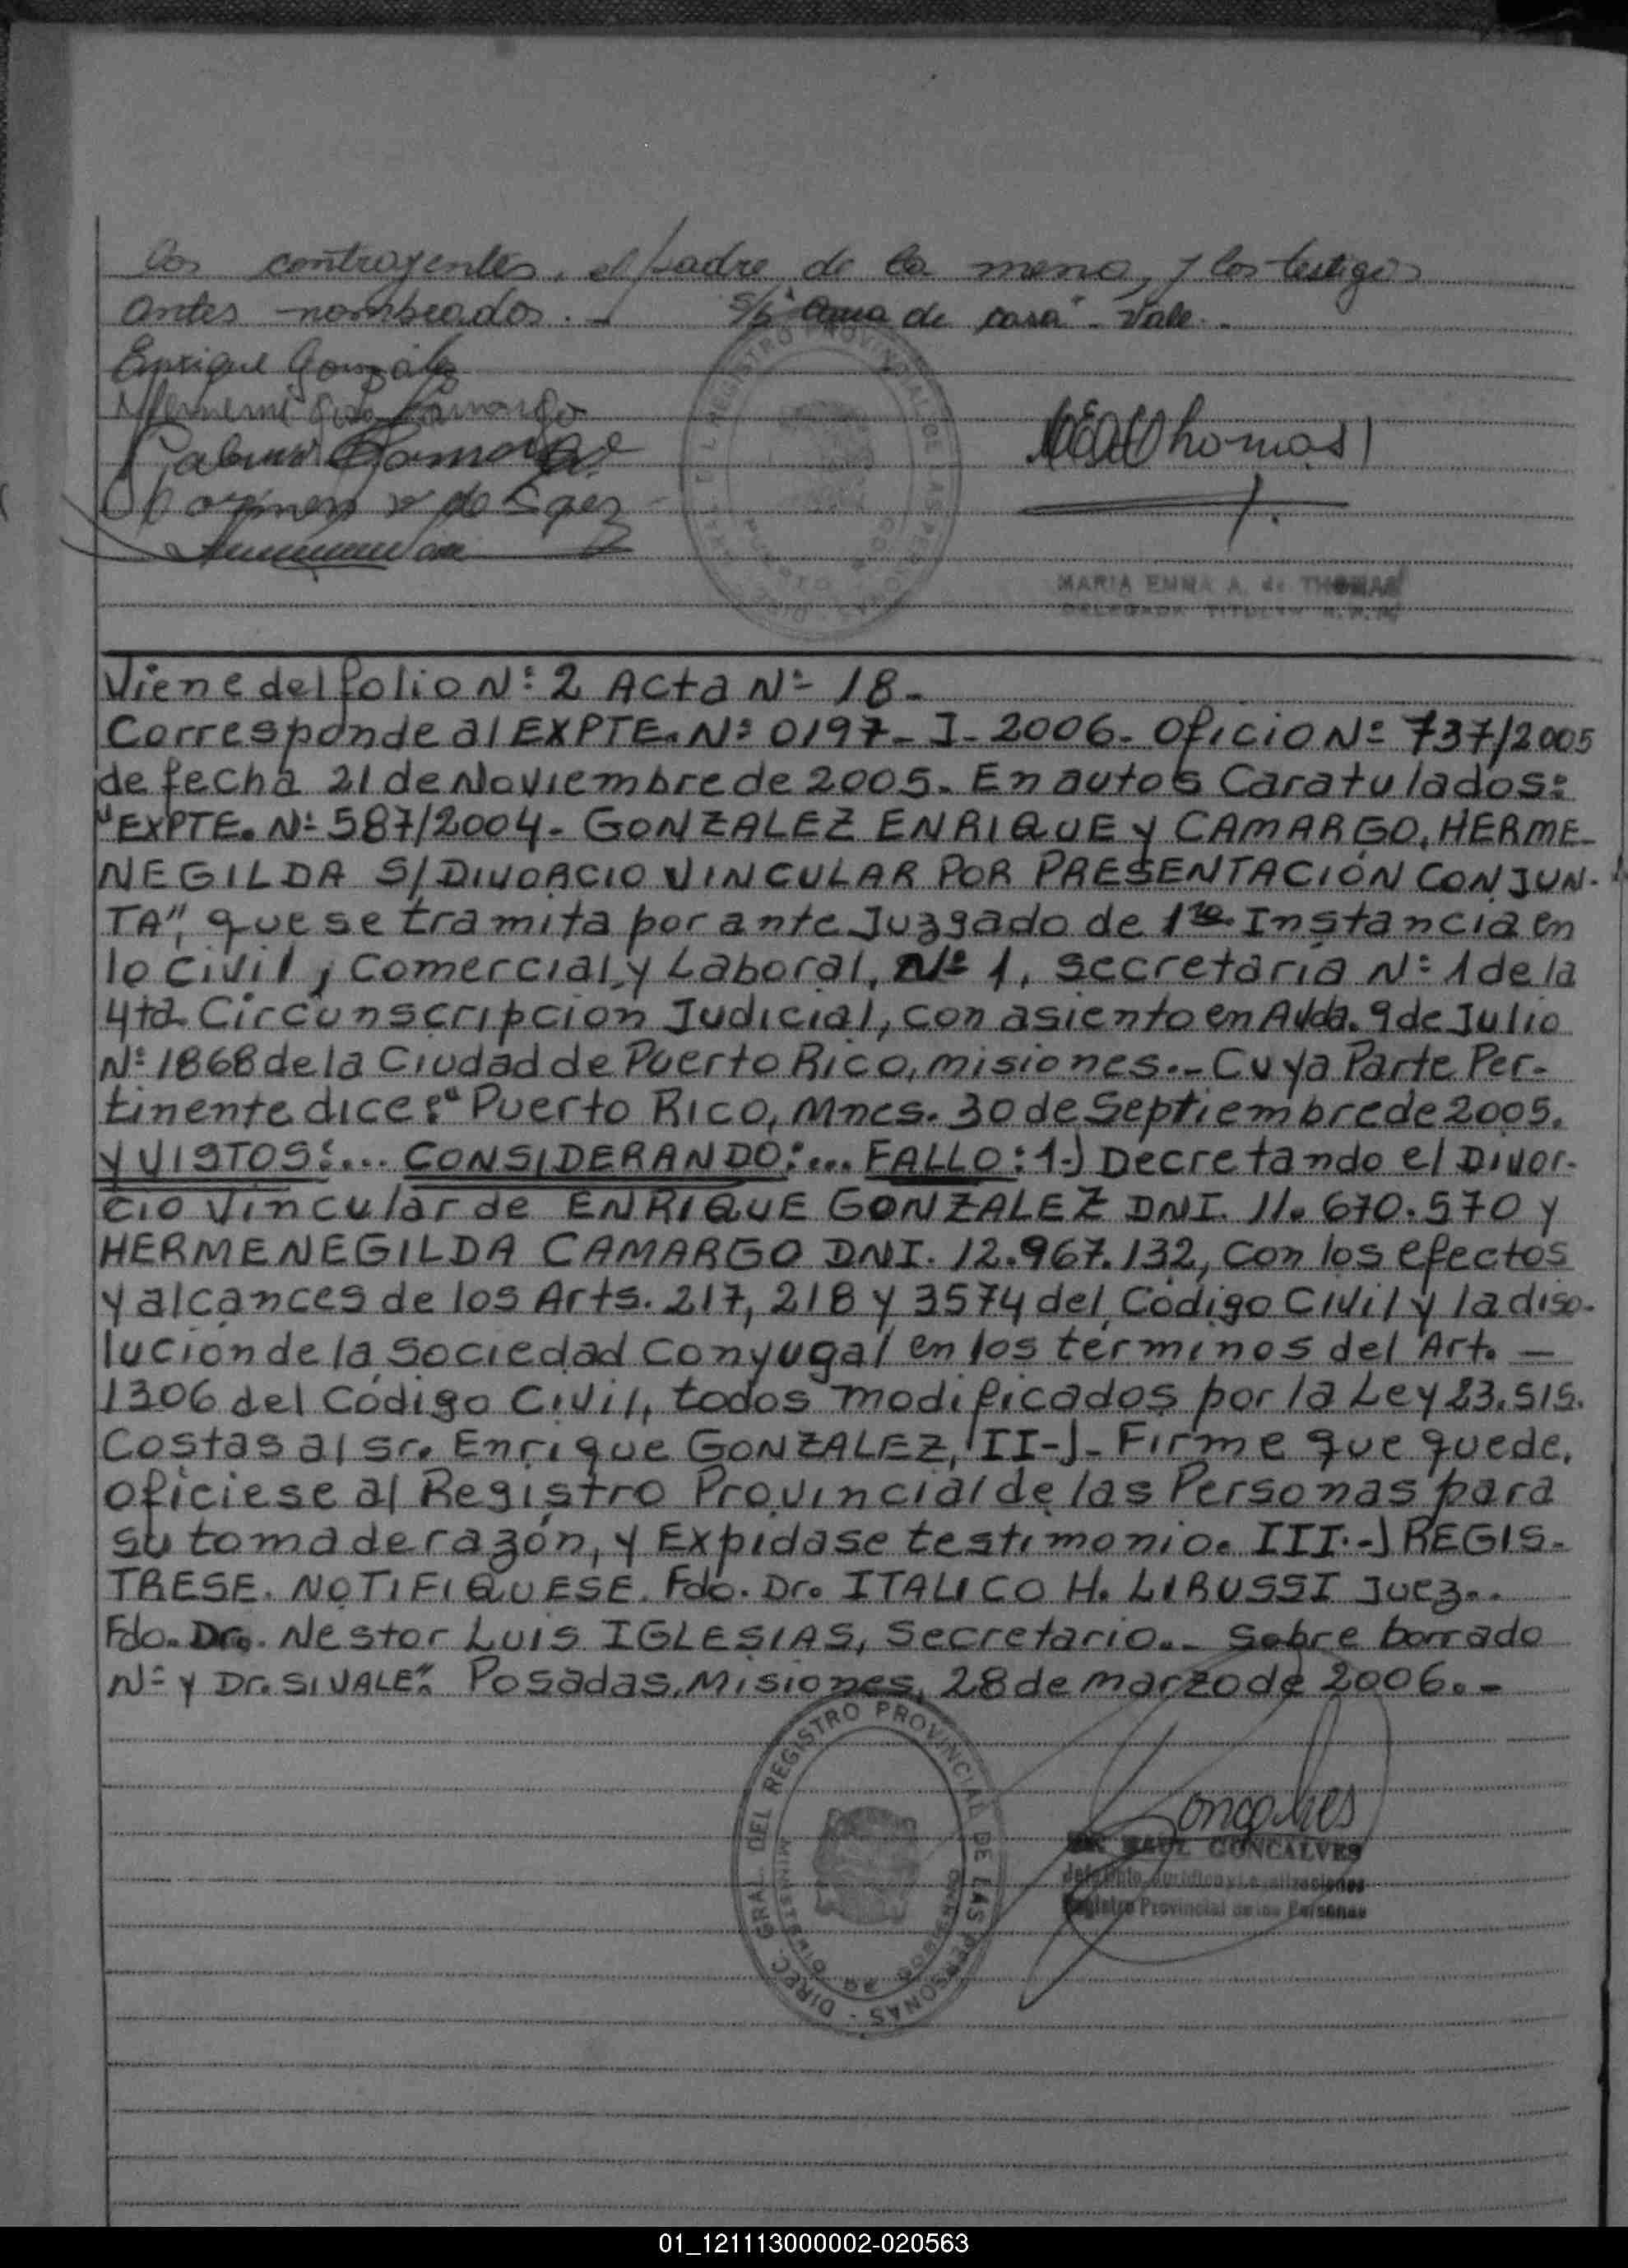 los contrayentes, el padre de la menor, y los testigos
antes nombrados. - S/b "ama de casa" - Vale -
Enrique González
Hermenegilda Camargo
Camargo
de Saez
Thomas
MARIA EMMA A. de THOMAS
DELEGADA TITULAR R.P.P.
Viene del folio Nº 2 Acta Nº 18-
Corresponde al EXPTE. Nº 0197-I-2006- Oficio Nº 737/2005
de fecha 21 de Noviembre de 2005. En autos Caratulados:
"EXPTE. Nº 587/2004- GONZALEZ ENRIQUE y CAMARGO, HERME-
NEGILDA S/DIVORCIO VINCULAR POR PRESENTACIÓN CONJUN-
TA", que se tramita por ante Juzgado de 1ra. Instancia en
lo Civil, Comercial y Laboral, Nº 1, secretaría Nº 1 de la
4ta Circunscripción Judicial, con asiento en Avda. 9 de Julio
Nº 1868 de la Ciudad de Puerto Rico, misiones.- Cuya Parte Per-
tinente dice: "Puerto Rico, Mnes. 30 de Septiembre de 2005.
Y VISTOS:... CONSIDERANDO:... FALLO: 1-) Decretando el Divor-
cio Vincular de ENRIQUE GONZALEZ DNI. 11.670.570 y
HERMENEGILDA CAMARGO DNI. 12.967.132, con los efectos
y alcances de los Arts. 217, 218 y 3574 del Código Civil y la diso-
lución de la Sociedad Conyugal en los términos del Art. —
1306 del Código Civil, todos modificados por la Ley 23.515.
Costas al Sr. Enrique GONZALEZ, II-)- Firme que quede,
ofíciese al Registro Provincial de las Personas para
su toma de razón, y Expídase testimonio. III.-) REGIS-
TRESE. NOTIFIQUESE. Fdo. Dr. ITALICO H. LIBUSSI Juez..
Fdo. Dr. Nestor Luis IGLESIAS, Secretario.- Sobre borrado
Nº y Dr. SI VALE". Posadas, Misiones, 28 de marzo de 2006.-
DIREC. GRAL. DEL REGISTRO PROVINCIAL DE LAS PERSONAS
Goncalves
RAUL GONCALVES
Registro Provincial de las Personas
01_121113000002-020563